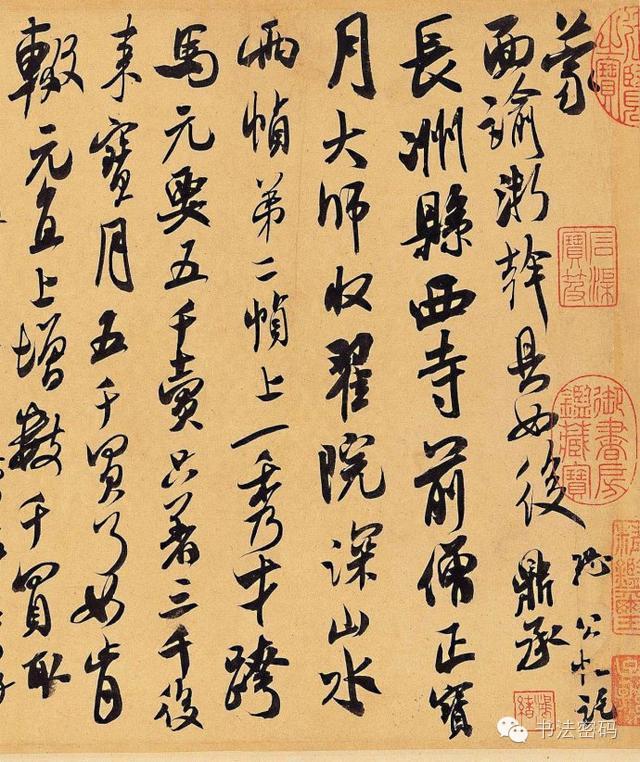 蒙
面諭浙幹具如後 鼎承
長洲縣西寺前僧正寶
月大師收翟院深山水
兩幀第二幀上一秀才跨
馬元要五千賣只著三千後
来寶月五千買了如肯
輟元直上增數千買取
石渠寶笈
御書房鑑藏寶
书法密码